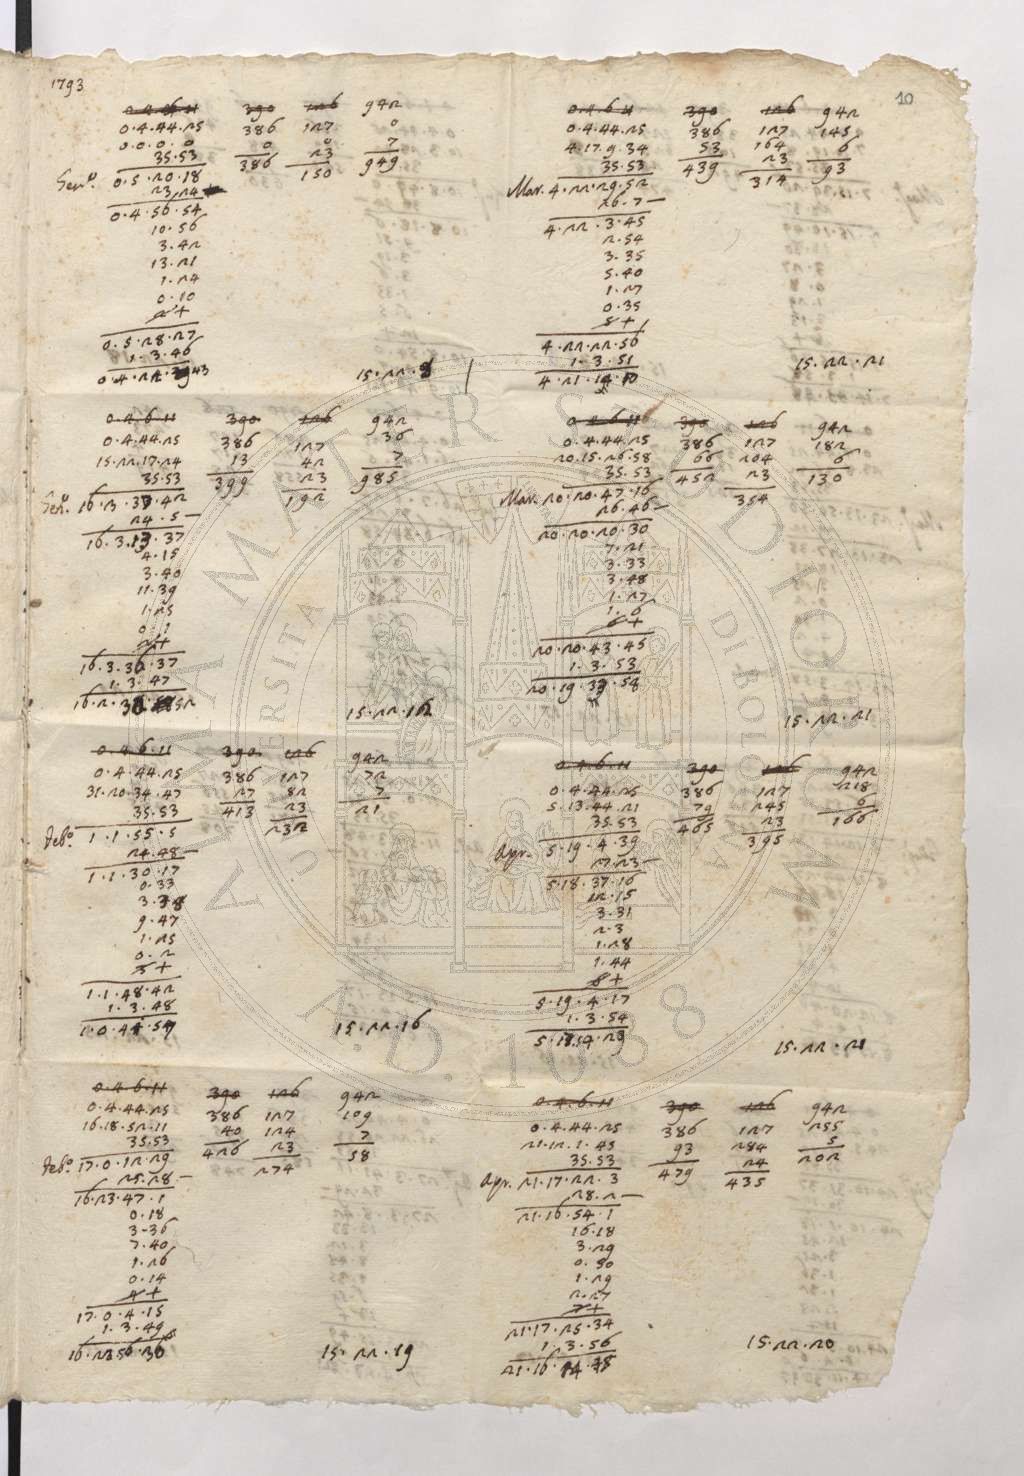 1793
10
0.4.6.11 390 126 942
0.4.44.25 386 127 0
0.0.0.0 0 0 7
35.53 386 23 949
Gen.º 0.5.20.18 150
23.24
0.4.56.54
10.56
3.42
13.21
1.24
0.10
2+
0.5.28.27
1.3.46
15.22.8
0.4.6.11 390 126 942
0.4.44.25 386 127 36
15.22.17.24 13 42 7
35.53 399 23 985
Gen.º 16.3.37.42 192
24.5 —
16.3.13.37
4.15
3.40
11.39
1.25
0.1
2+
16.3.36.37
1.3.47
15.22.12
0.4.6.11 390 126 942
0.4.44.25 386 127 72
31.20.34.47 27 82 7
35.53 413 23 21
Feb.º 1.1.55.5 232
24.48 —
1.1.30.17
0.33
3.38
9.47
1.25
0.2
3+
1.1.48.42
1.3.48
1.0.44.54
15.22.16
0.4.6.11 390 126 942
0.4.44.25 386 127 109
16.18.52.11 40 124 7
35.53 426 23 58
Feb.º 17.0.12.29 274
25.28 —
16.23.47.1
0.18
3-36
7.40
1.26
0.14
4+
17.0.4.15
1.3.49
15.22.19
0.4.6.11 390 126 942
0.4.44.25 386 127 145
4.17.9.34 53 164 6
35.53 439 23 93
Mar. 4.22.29.52 314
26.7 —
4.22.3.45
2.54
3.35
5.40
1.27
0.35
5+
4.22.22.56
1.3.51
15.22.21
0.4.6.11 390 126 942
0.4.44.25 386 127 182
20.15.26.58 66 204 6
35.53 452 23 130
Mar. 20.20.47.16 354
26.46 —
20.20.20.30
7.21
3.33
3.48
1.27
1.6
6+
20.20.43.45
1.3.53
15.22.21
0.4.6.11 390 126 942
0.4.44.25 386 127 218
5.13.44.21 79 245 6
35.53 465 23 166
Apr. 5.19.4.39 395
27.23 —
5.18.37.16
12.15
3.31
2.3
1.28
1.44
6+
5.19.4.17
1.3.54
15.22.21
0.4.6.11 390 126 942
0.4.44.25 386 127 255
21.12.1.45 93 284 5
35.53 479 24 202
Apr. 21.17.22.3 435
28.2 —
21.16.54.1
16.18
3.29
0.30
1.29
2.27
7+
21.17.25.34
1.3.56
15.22.20
ALMA MATER STUDIORUM
A.D. 1088